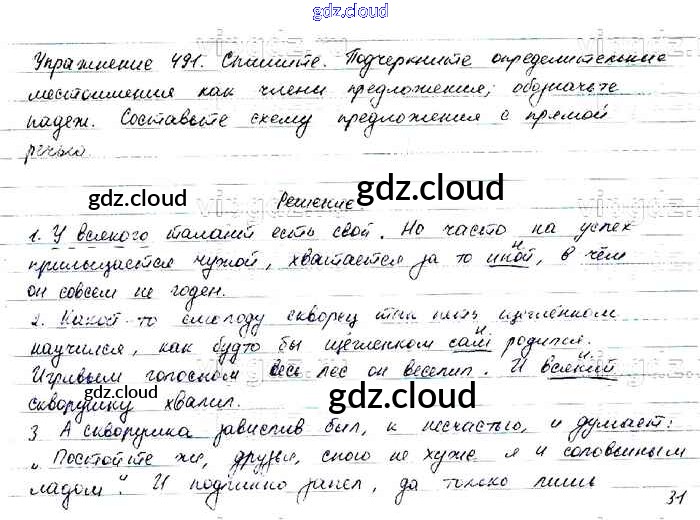 gdz.cloud
Упражнение 491. Спишите. Подчеркните определительные
местоимения как члены предложения, обозначьте
падеж. Составьте схему предложения с прямой
речью.
gdz.cloud Решение. gdz.cloud
1. У всякого талант есть свой. Но часто на успех
прельщается чужой, хватается за то иной, в чём
он совсем не годен.
2. Какой-то смолоду скворец так петь щеглёнком
научился, как будто бы щегленком сам родился.
Игривым голоском весь лес он веселил. И всякий
скворушку хвалил.
gdz.cloud gdz.cloud
3 А скворушка завистлив был, к несчастью, и думает:
„Постойте же, друзья, спою не хуже я и соловьиным
ладом". И подлинно запел, да только лишь
31